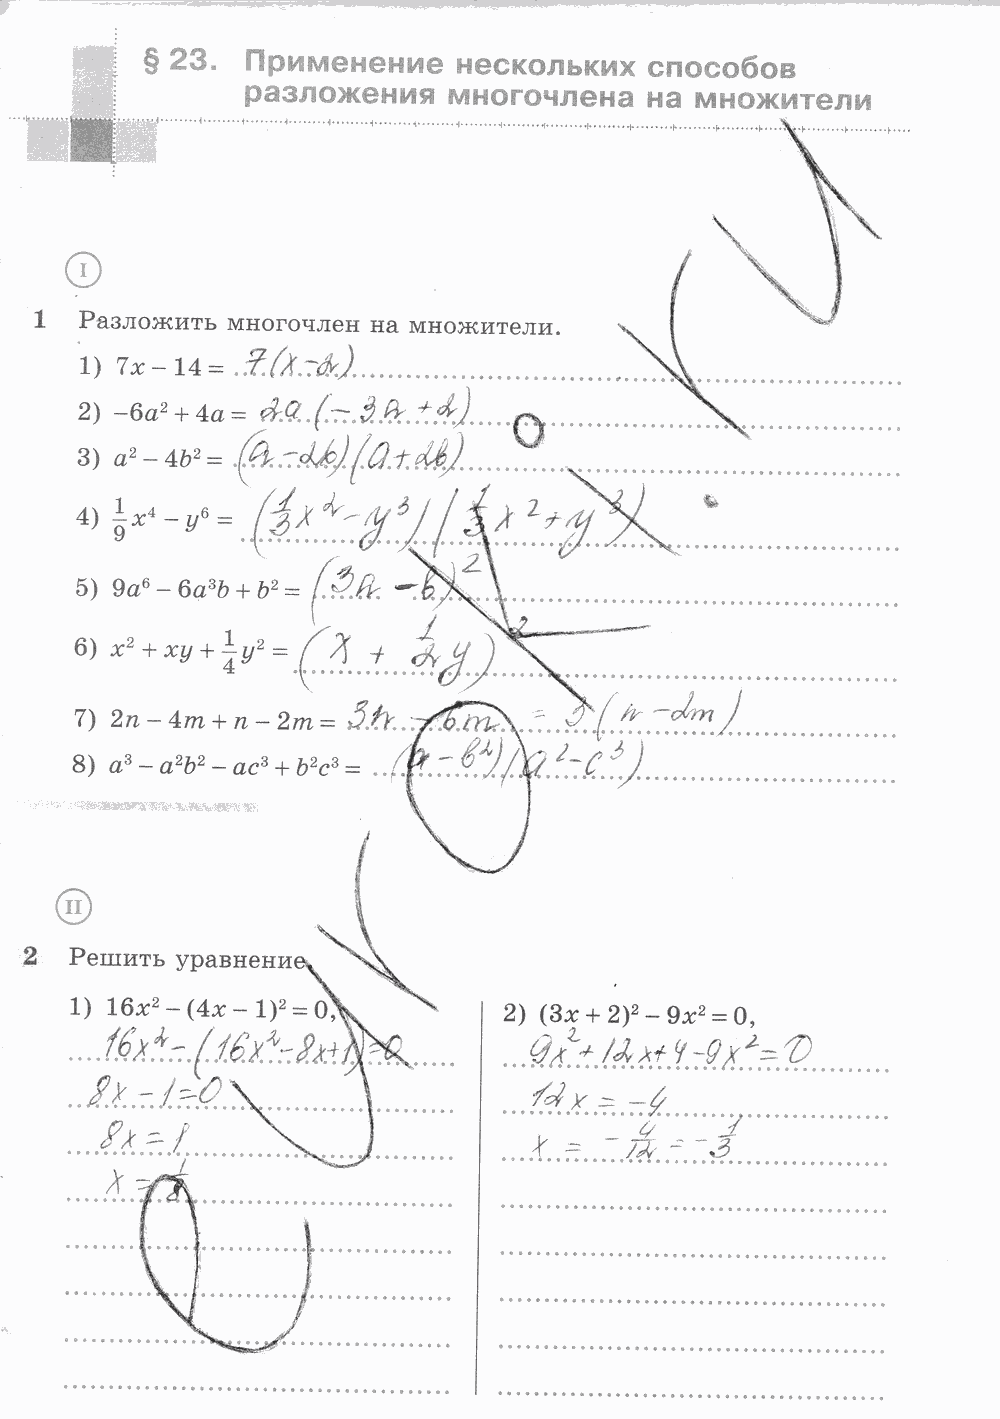 § 23. Применение нескольких способов
разложения многочлена на множители
I
1 Разложить многочлен на множители.
1) 7x − 14 = 7(x − 2)
2) −6a² + 4a = 2a (−3a + 2)
3) a² − 4b² = (a − 2b)(a + 2b)
4) 1/9 x⁴ − y⁶ = (1/3 x² − y³)(1/3 x² + y³)
5) 9a⁶ − 6a³b + b² = (3a − b)²
6) x² + xy + 1/4 y² = (x + 1/2 y)²
7) 2n − 4m + n − 2m = 3n − 6m = 3(n − 2m)
8) a³ − a²b² − ac³ + b²c³ = (a − b²)(a² − c³)
II
2 Решить уравнение.
1) 16x² − (4x − 1)² = 0,
16x² − (16x² − 8x + 1) = 0
8x − 1 = 0
8x = 1
x = 1/8
2) (3x + 2)² − 9x² = 0,
9x² + 12x + 4 − 9x² = 0
12x = −4
x = − 4/12 = − 1/3